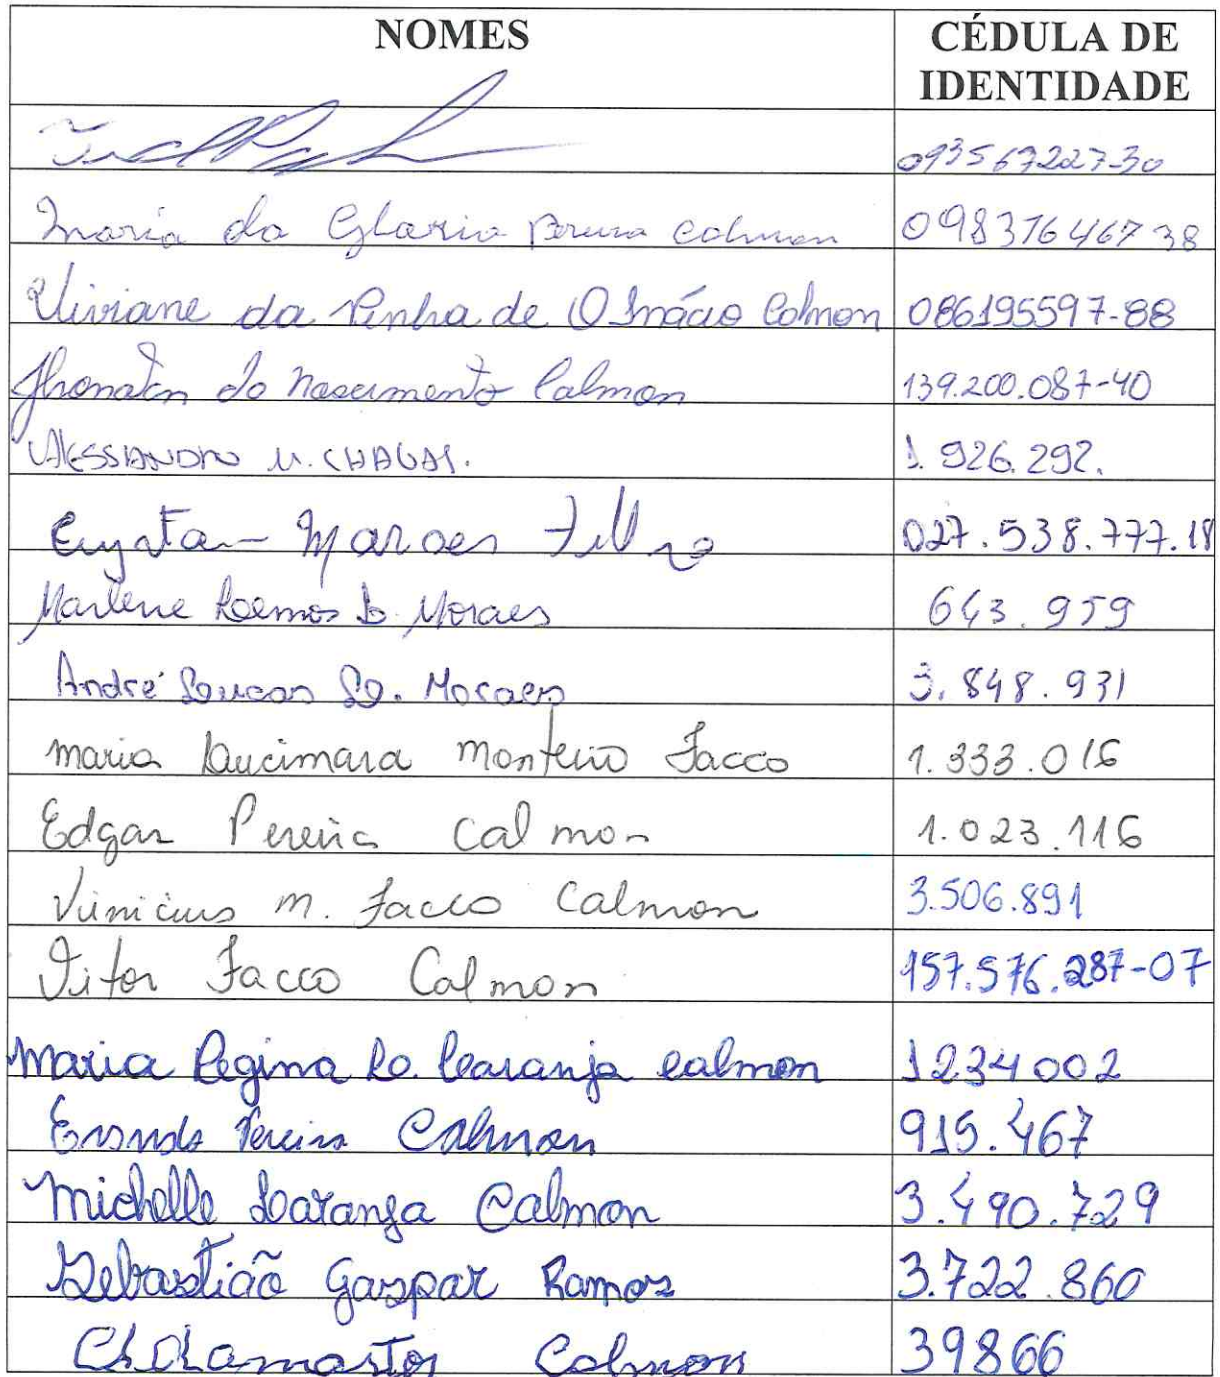 NOMES CÉDULA DE IDENTIDADE
09356722730
Maria da Gloria Calmon 09837646738
Viviane da Penha de O Inácio Calmon 086195597-88
Jhonatan do Nascimento Calmon 139.200.087-40
ALESSANDRO M. CHAGAS. 1.926.292.
Moraes Filho 027.538.777.18
Marlene Lemos L. Moraes 643.959
André Lucas L. Moraes 3.848.931
Maria Lucimara Monteiro Facco 1.333.016
Edgar Pereira Calmon 1.023.116
Vinicius M. Facco Calmon 3.506.891
Vitor Facco Calmon 157.576.287-07
Maria Regina Lo. Laranja Calmon 1234002
Pereira Calmon 915.467
Michelle Laranja Calmon 3.490.729
Sebastião Gaspar Ramos 3.722.860
Calmon 39866